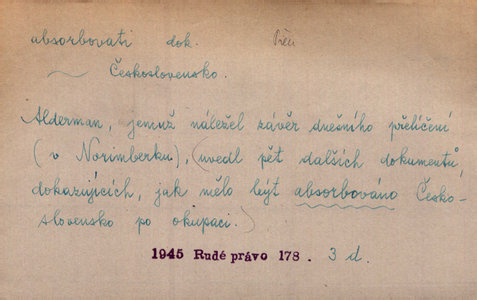 absorbovati dok.
~ Československo.
Alderman, jemuž náležel závěr dnešního přelíčení
(v Norimberku), (uvedl pět dalších dokumentů,
dokazujících, jak mělo být absorbováno Česko-
slovensko po okupaci.)
1945 Rudé právo 178. 3 d.